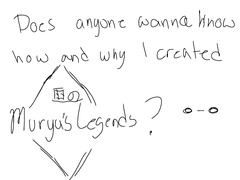 Does anyone wanna know
how and why I created
Murya's Legends? o-o